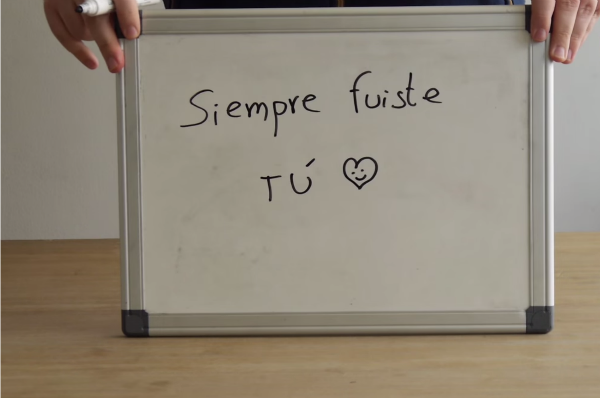 Siempre fuiste
TÚ